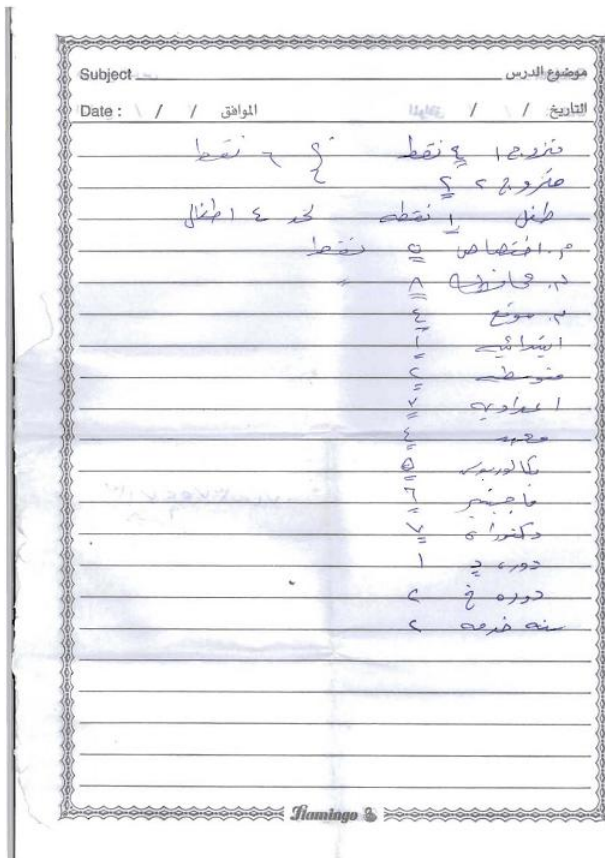 Subject موضوع الدرس
Date : / / الموافق / / التاريخ
متزوج ١ ٤ نقط ٦ نقط
متزوج ٢ ٢
طفل ١ نقطه لحد ٤ اطفال
م. اختصاص ٥ نقط
م. محافظه ٨ "
م. موقع ٤
ابتدائيه ١
متوسطه ٢
اعداديه
معهد ٤
بكالوريوس ٥
ماجستير ٦
دكتوراه ٧
دوره د ١
دوره خ ٢
سنه خدمه ٢
Flamingo